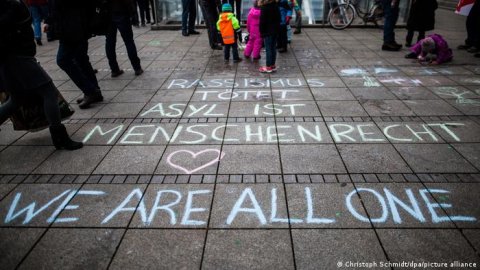 RASSISMUS
TÖTET
ASYL IST
MENSCHENRECHT
WE ARE ALL ONE
© Christoph Schmidt/dpa/picture alliance